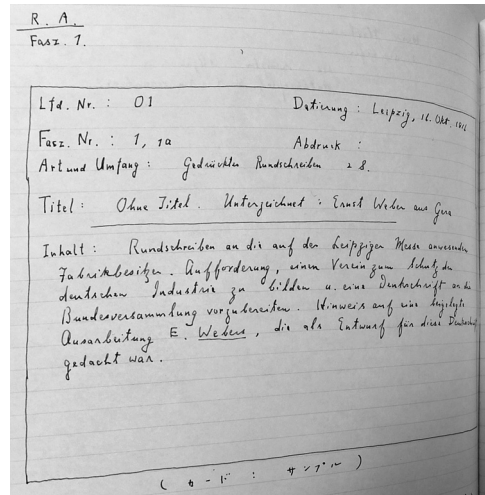 R. A.
Fasz. 1.
Lfd. Nr. : 01 Datierung : Leipzig, 16. Okt. 1816
Fasz. Nr. : 1, 1a Abdruck :
Art und Umfang : Gedrücktes Rundschreiben 2 S.
Titel : Ohne Titel. Unterzeichnet : Ernst Weber aus Gera
Inhalt : Rundschreiben an die auf der Leipziger Messe anwesenden
Fabrikbesitzer. Aufforderung, einen Verein zum Schutz der
deutschen Industrie zu bilden u. eine Denkschrift an die
Bundesversammlung vorzubereiten. Hinweis auf eine beigelegte
Ausarbeitung E. Webers, die als Entwurf für diese Denkschrift
gedacht war.
( カード : サンプル )